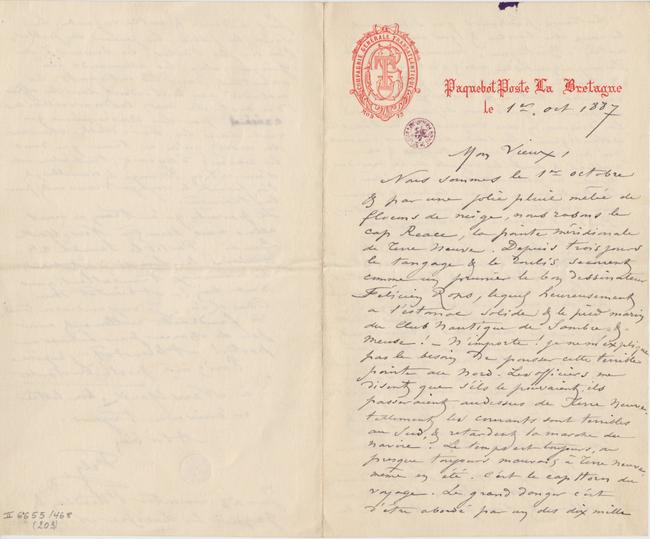 COMPAGNIE GÉNÉRALE TRANSATLANTIQUE
Paquebot Poste La Bretagne
le 1er oct 1887
Mon Vieux,
Nous sommes le 1er octobre
& par une jolie pluie mêlée de
flocons de neige, nous rasons le
cap Reace, la pointe méridionale
de Terre Neuve. Depuis trois jours
le tangage & le roulis secouent
comme un prunier le bon dessinateur
Félicien Rops, lequel heureusement
a l'estomac solide & le pied marin
du Club Nautique de Sambre &
Meuse! – N'importe! je ne m'explique
pas le besoin de pousser cette terrible
pointe au Nord. Les officiers me
disent que s'ils le pouvaient, ils
passeraient au dessus de Terre Neuve
tellement les courants sont terribles
au Sud, & retardent la marche du
navire! Le temps est toujours, ou
presque toujours mauvais à Terre Neuve
même en été. C'est le cap Horn du
voyage. Le grand danger c'est
d'être abordé par un des dix mille
II 6655/468
(203)